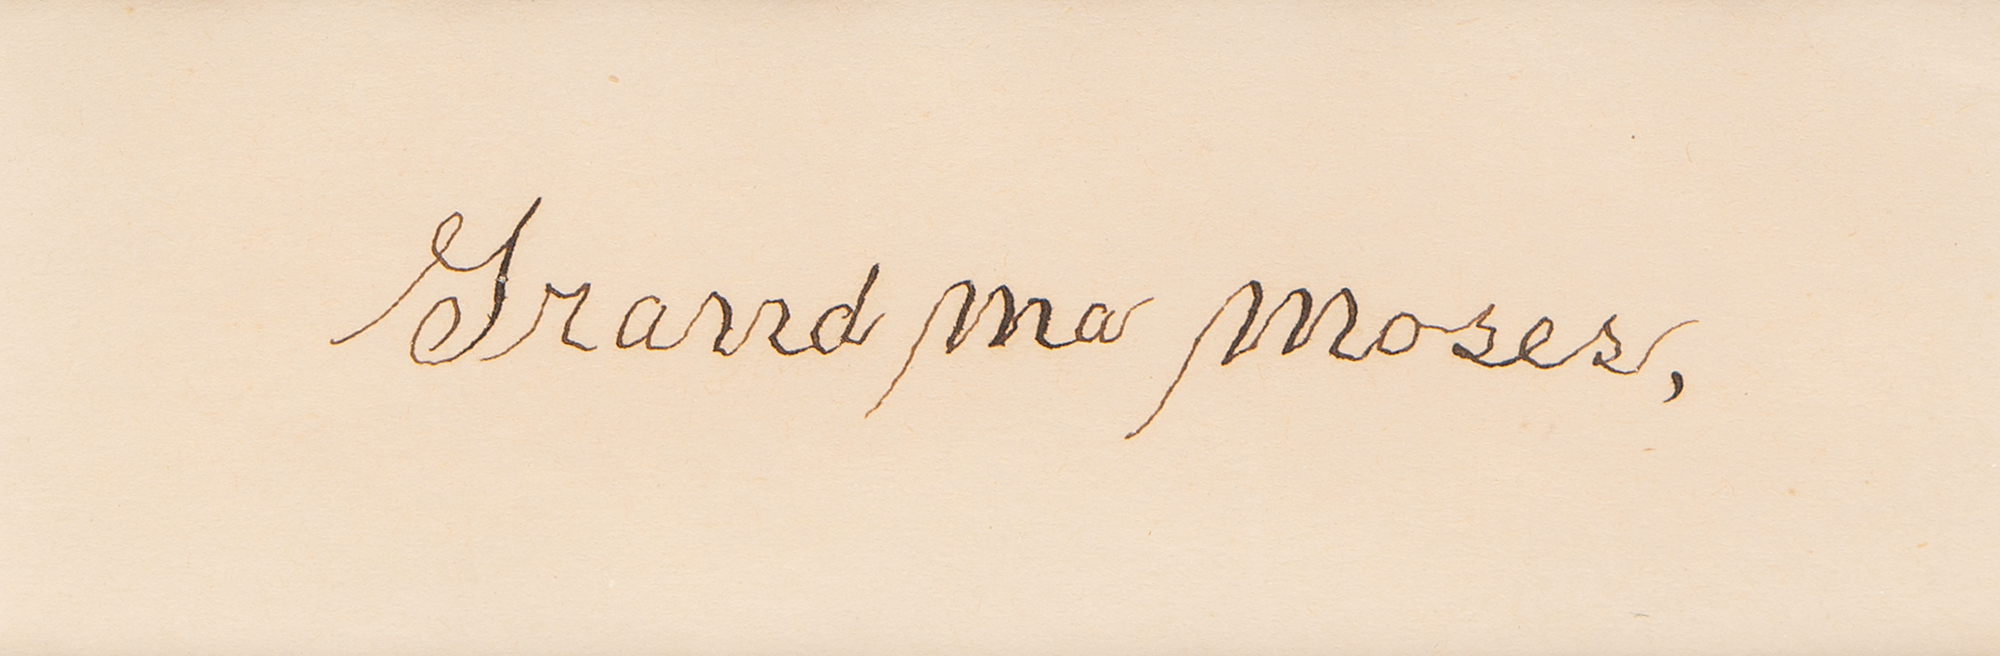 Grand ma Moses,